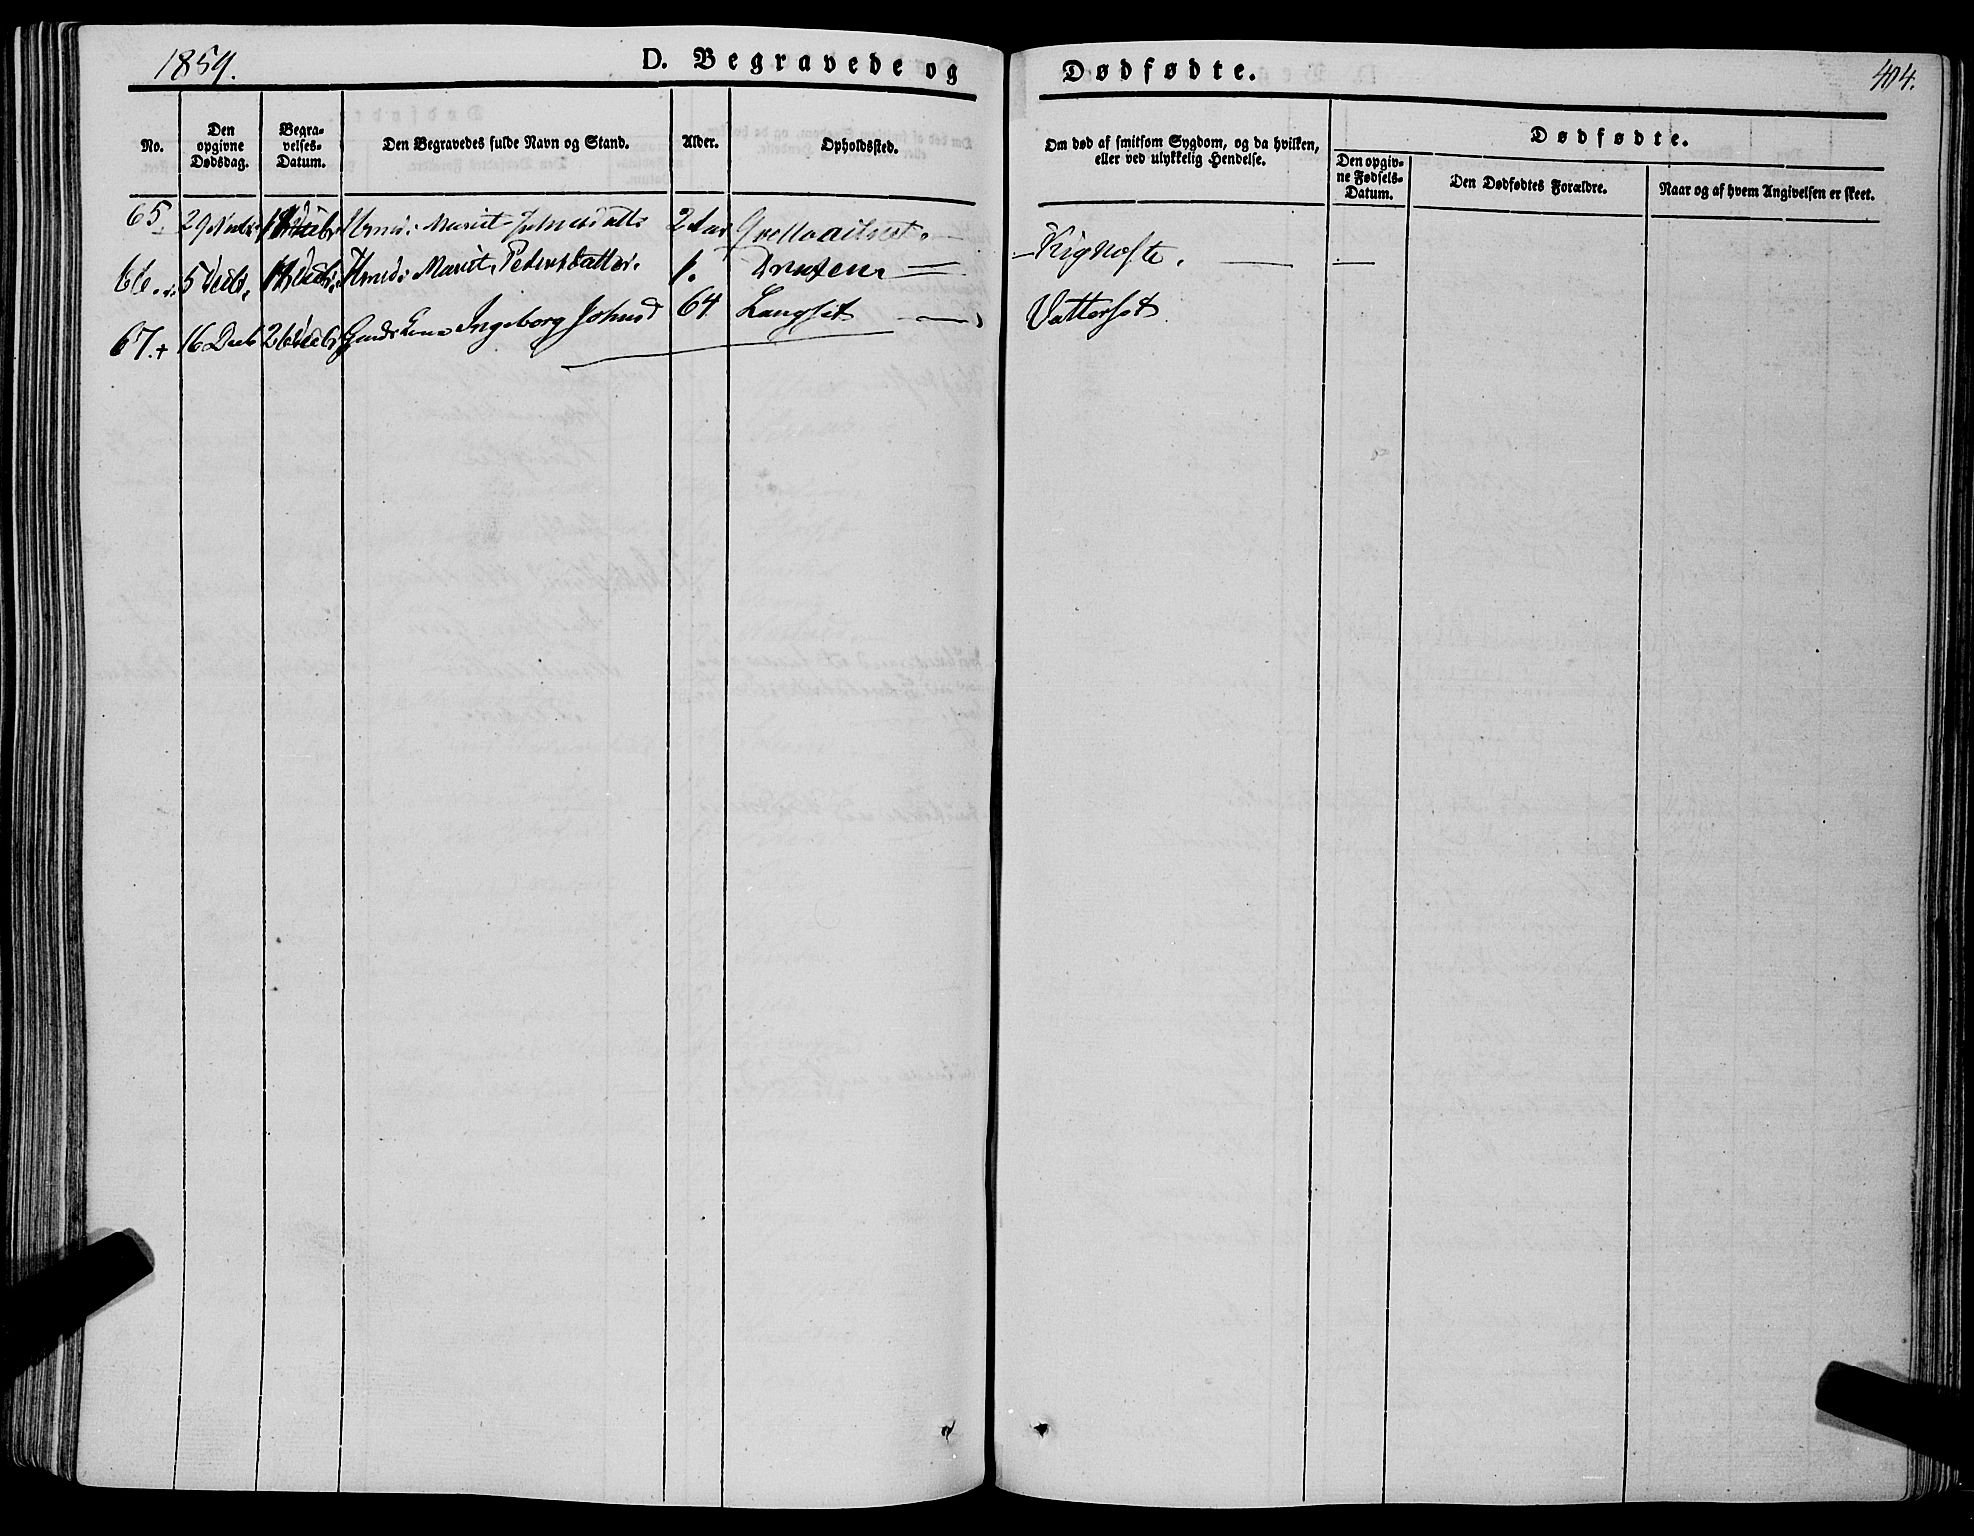 1859.
D. Begravede og Dødfødte.
404.
No.
Den opgivne Dødsdag.
Begra-
velses-
Datum.
Den Begravedes fulde Navn og Stand.
Alder.
Opholdssted.
Om død af smitsom Sygdom, og da hvilken,
eller ved ulykkelig Hendelse.
Dødfødte.
Den opgiv-
ne Fødsels-
Datum.
Den Dødfødtes Forældre.
Naar og af hvem Angivelsen er skeet.
65. 29 Marit 2 Aar Kighoste.
66. 5 Decbr. Marit Pedersdatter. 1.
67. + 16 Decb 26 Decbr Ingeborg Johnsd 64 Langset Vattersot